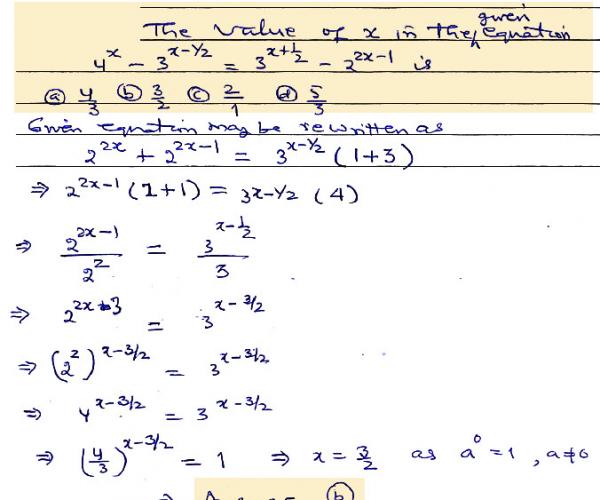 The value of x in the given equation
4^x - 3^(x-1/2) = 3^(x+1/2) - 2^(2x-1) is
(a) 4/3 (b) 3/2 (c) 2/1 (d) 5/3
Given equation may be rewritten as
2^(2x) + 2^(2x-1) = 3^(x-1/2) (1+3)
⇒ 2^(2x-1) (1+1) = 3x-1/2 (4)
⇒ 2^(2x-1)/2^2 = 3^(x-1/2)/3
⇒ 2^(2x-3) = 3^(x-3/2)
⇒ (2^2)^(x-3/2) = 3^(x-3/2)
⇒ 4^(x-3/2) = 3^(x-3/2)
⇒ (4/3)^(x-3/2) = 1 ⇒ x = 3/2 as a^0 = 1, a≠0
⇒ (b)